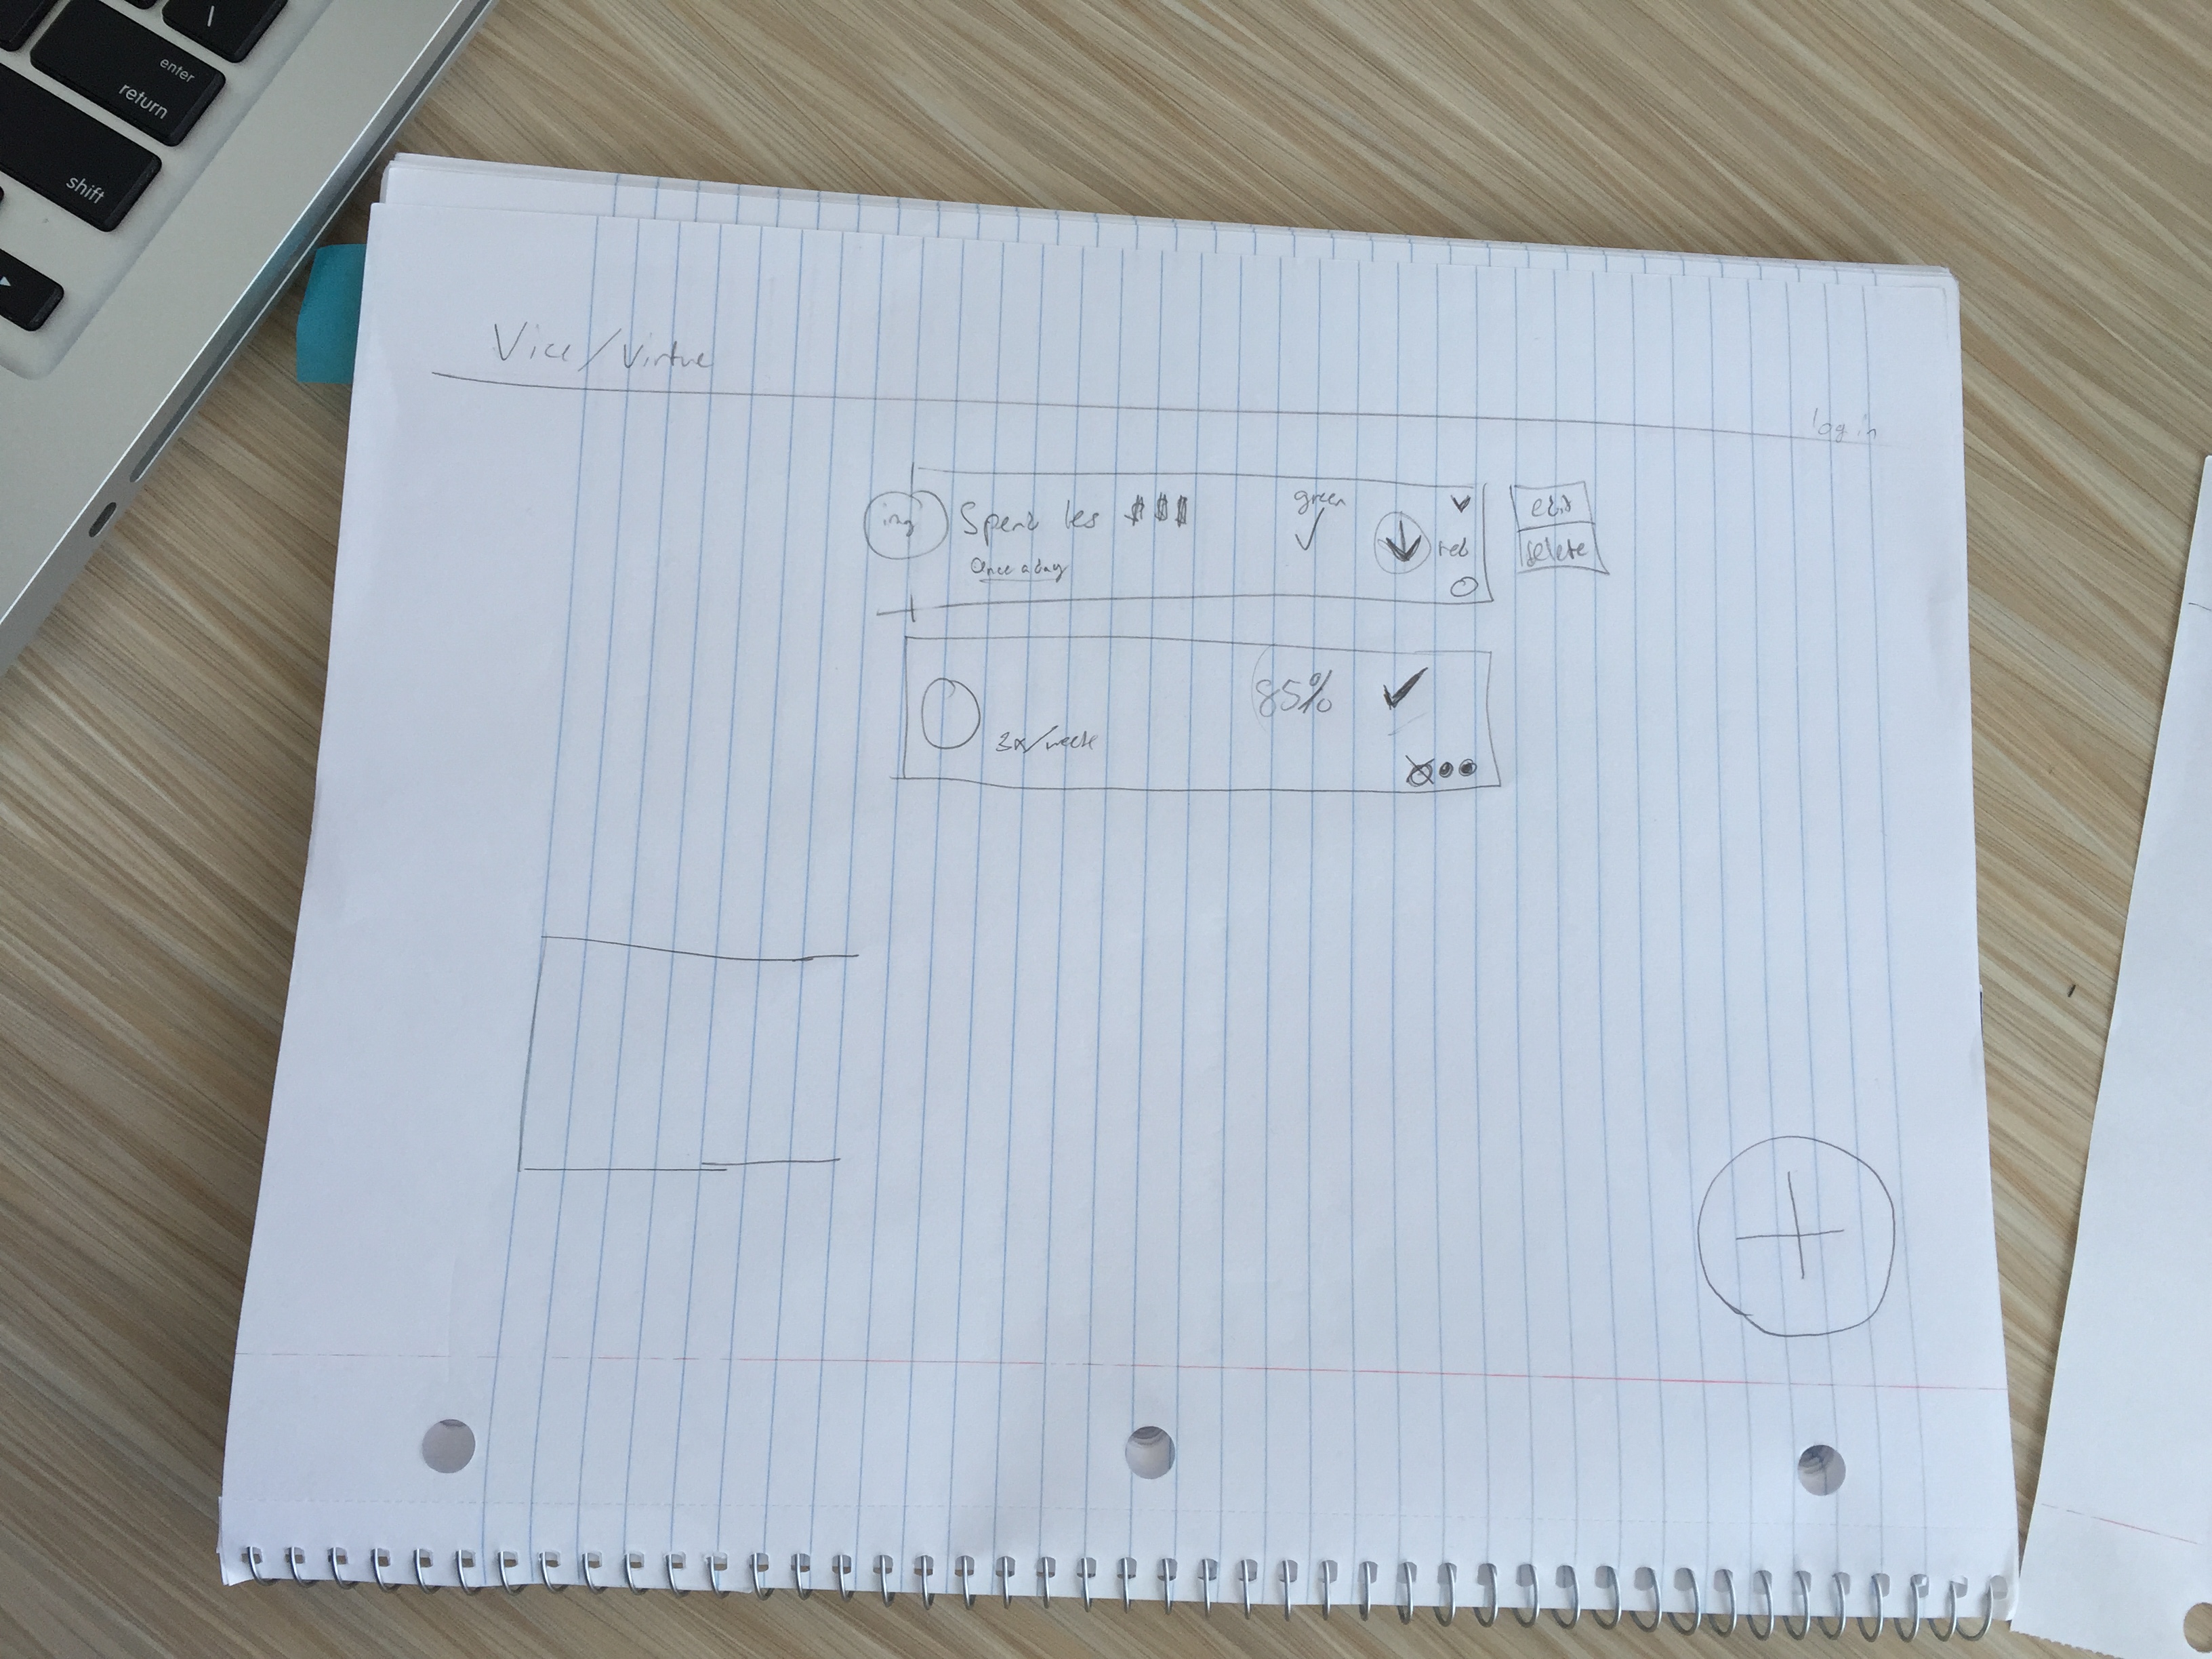 \
enter
return
shift
Vice/Virtue
log in
img
Spend les $$$
Once a day
green
red
edit
delete
85%
3x/week